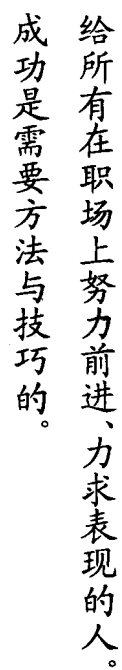 给所有在职场上努力前进、力求表现的人。
成功是需要方法与技巧的。